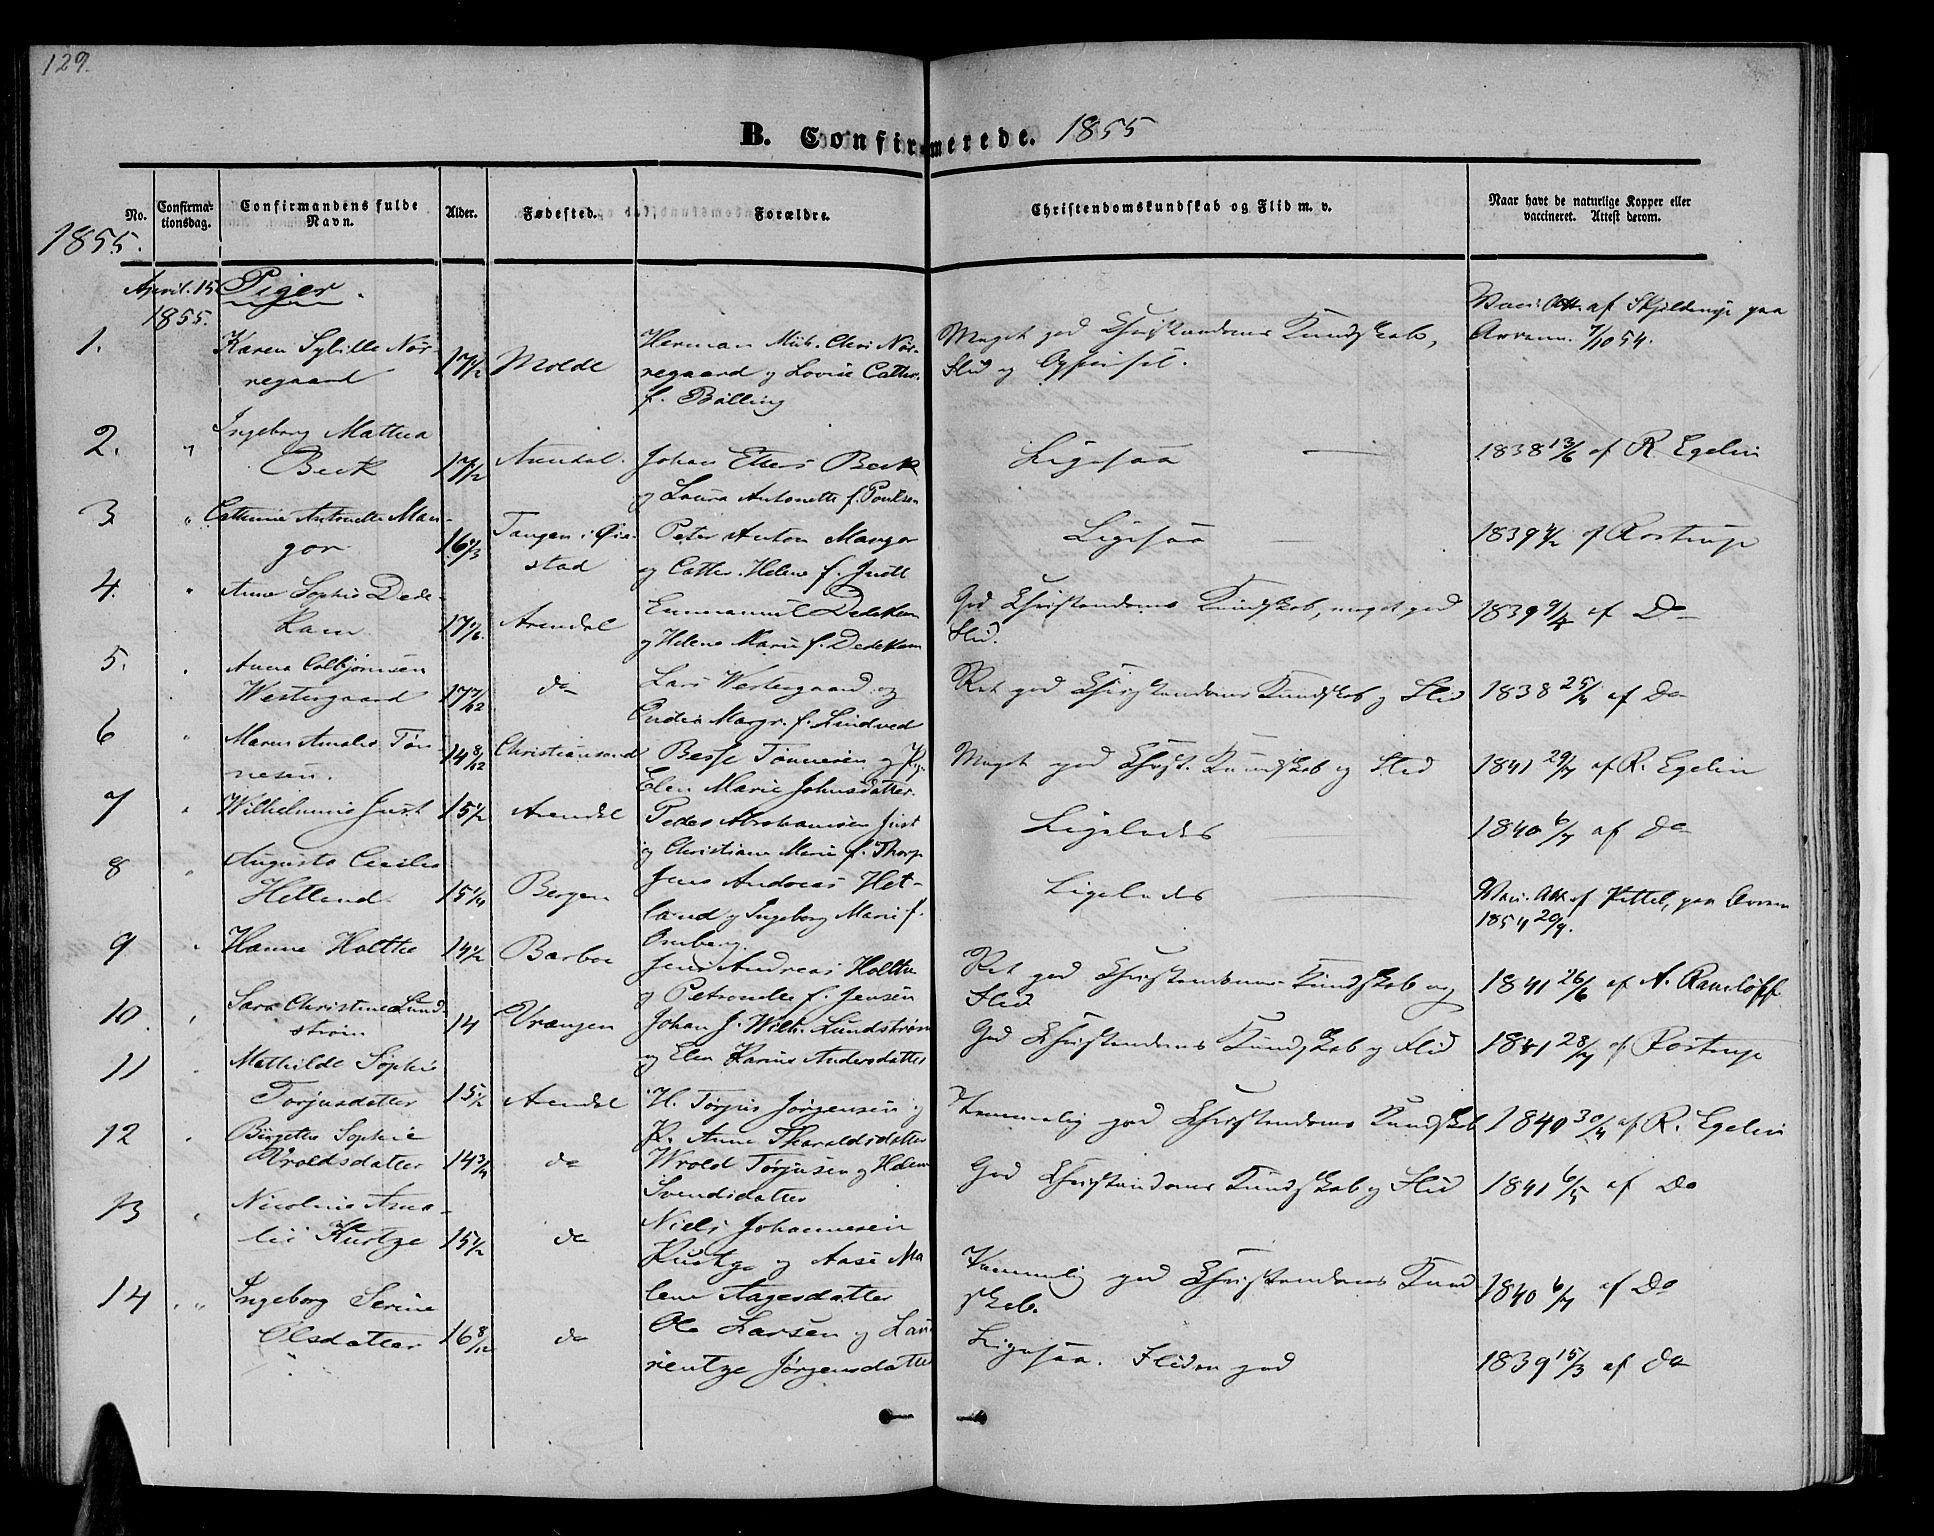 129.
B. Confirmerede. 1855
No.
Confirma-
tionsdag.
Confirmandens fulde
Navn.
Alder.
Fødested.
Forældre.
Christendomskundskab og Flid m. v.
Naar havt de naturlige Kopper eller
vaccineret. Attest derom.
1855.
April. 15
1855.
Piger.
1.
Karen Sybille Nør-
regaard
17 1/2
Molde
Herman Chr. Nør-
regaard og Lovise Cathr.
f. Bølling
Meget god Christendoms Kundskab,
Flid og Opførsel.
Vacc. Att. af paa
7/10 54.
2. "
Ingeborg Mathea
Beck
17 1/2
Arendal.
Johan Ellers Beck
og Laura Antonette f. Poulsen
Ligesaa
1838 13/6 af R. Egelin
3 "
Cathrine Antonette Man-
gor
16 1/3
Tangen i Øie-
stad
Peter Anton Mangor
og Cathr. Helene f. Juell
Ligesaa
1839 af Rostrup
4. "
Anne Sophie Dede-
kam
17 1/6
Arendal
Emmanuel Dedekam
og Helene Marie f. Dedekam
God Christendoms Kundskab, meget god
Flid.
1839 9/4 af Do
5. "
Anna Colbjørnsen
Westergaard
17 7/12
do
Lars Westergaard og
Margr. f. Lindved
Ret god Christendoms Kundskab og Flid
1838 af Do
6 "
Maren Amalie Tøn-
nesen.
14 8/12
Christiansand
Tønnesen og
Elen Marie Johnsdatter
Meget god Christ. Kundskab og Flid
1841 29/7 af R. Egelin
7 "
Wilhelmine Just
15 1/2
Arendal
Peder Abrahamsen Just
og Christiane Marie f. Thorp
Ligeledes
1840 6/7 af do
8 "
Augusta Cecilie
Hetland.
15 1/4
Bergen
Jens Andreas Het-
land og Ingeborg Marie f.
Ligeledes
Vacc. Att. af Kittel, paa
1854 29/9.
9 "
Hanne Holthe
14 1/2
Barboe
Jens Andreas Holthe
og Petronelle f. Jensen
Ret god Christendoms Kundskab og
Flid.
1841 26/6 af A. Ramløff
10. "
Sara Christine Lund-
strøm
14
Vrængen
Johan J. Wilh. Lundstrøm
og Elen Karine Andersdatter
God Christendoms Kundskab og Flid
1841 28/7 af Rostrup
11 "
Mathilde Sophie
Torjusdatter
15 1/2
Arendal
H. Torjus Jørgensen og
K. Anne Tharaldsdatter
Temmelig god Christendoms Kundskab
1840 af R. Egelin
12 "
Birgitte Sophie
Wroldsdatter
14 3/4
do
Wrold Torjusen og Helene
Svendsdatter
God Christendoms Kundskab og Flid
1841 6/5 af Do
13 "
Nicoline Ama-
lie Kurtze
15 1/2
do
Niels Johannesen
Kurtze og Aase Ma-
lene Aagesdatter
Temmelig god Christendoms Kund
skab.
1840 6/7 af Do
14 "
Ingeborg Serine
Olsdatter
16 8/12
do
Ole Larsen og Lau-
rentze Jørgensdatter
Ligesaa. Fliden god
1839 15/3 af do